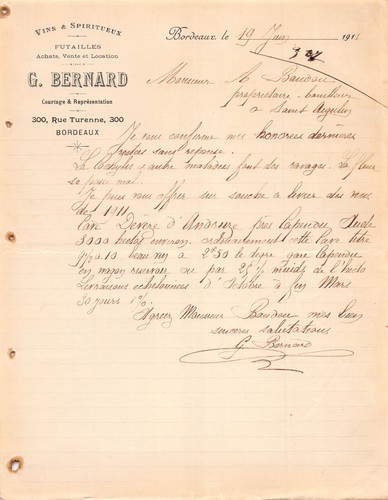 VINS & SPIRITUEUX
FUTAILLES
Achats, Vente et Location
G. BERNARD
Courtage & Représentation
300, Rue Turenne, 300
BORDEAUX
Bordeaux, le 19 Juin 1911
327
Monsieur A Baudou
propriétaire
à Saint Aigulin
Je vous confirme mes honorées dernières
restées sans reponse.
La Cochylis & autre maladies font des ravages. La fleur
se passe mal.
Je puis vous offrir sur souche à livrer des vins
de 1911
Cave Désiré d'Andoire près Capendu Aude
3000 hectos environ. ordinairement cette Cave titre
9½ à 10 beau vin à 2.50 le degré gare Capendu
en wagon reservoir ou par 25 % muids de l'hecto
Livraisons echelonnées d'Octobre à fin Mars
30 jours 1%
Agréez Monsieur Baudou mes bien
sincères salutations
G. Bernard